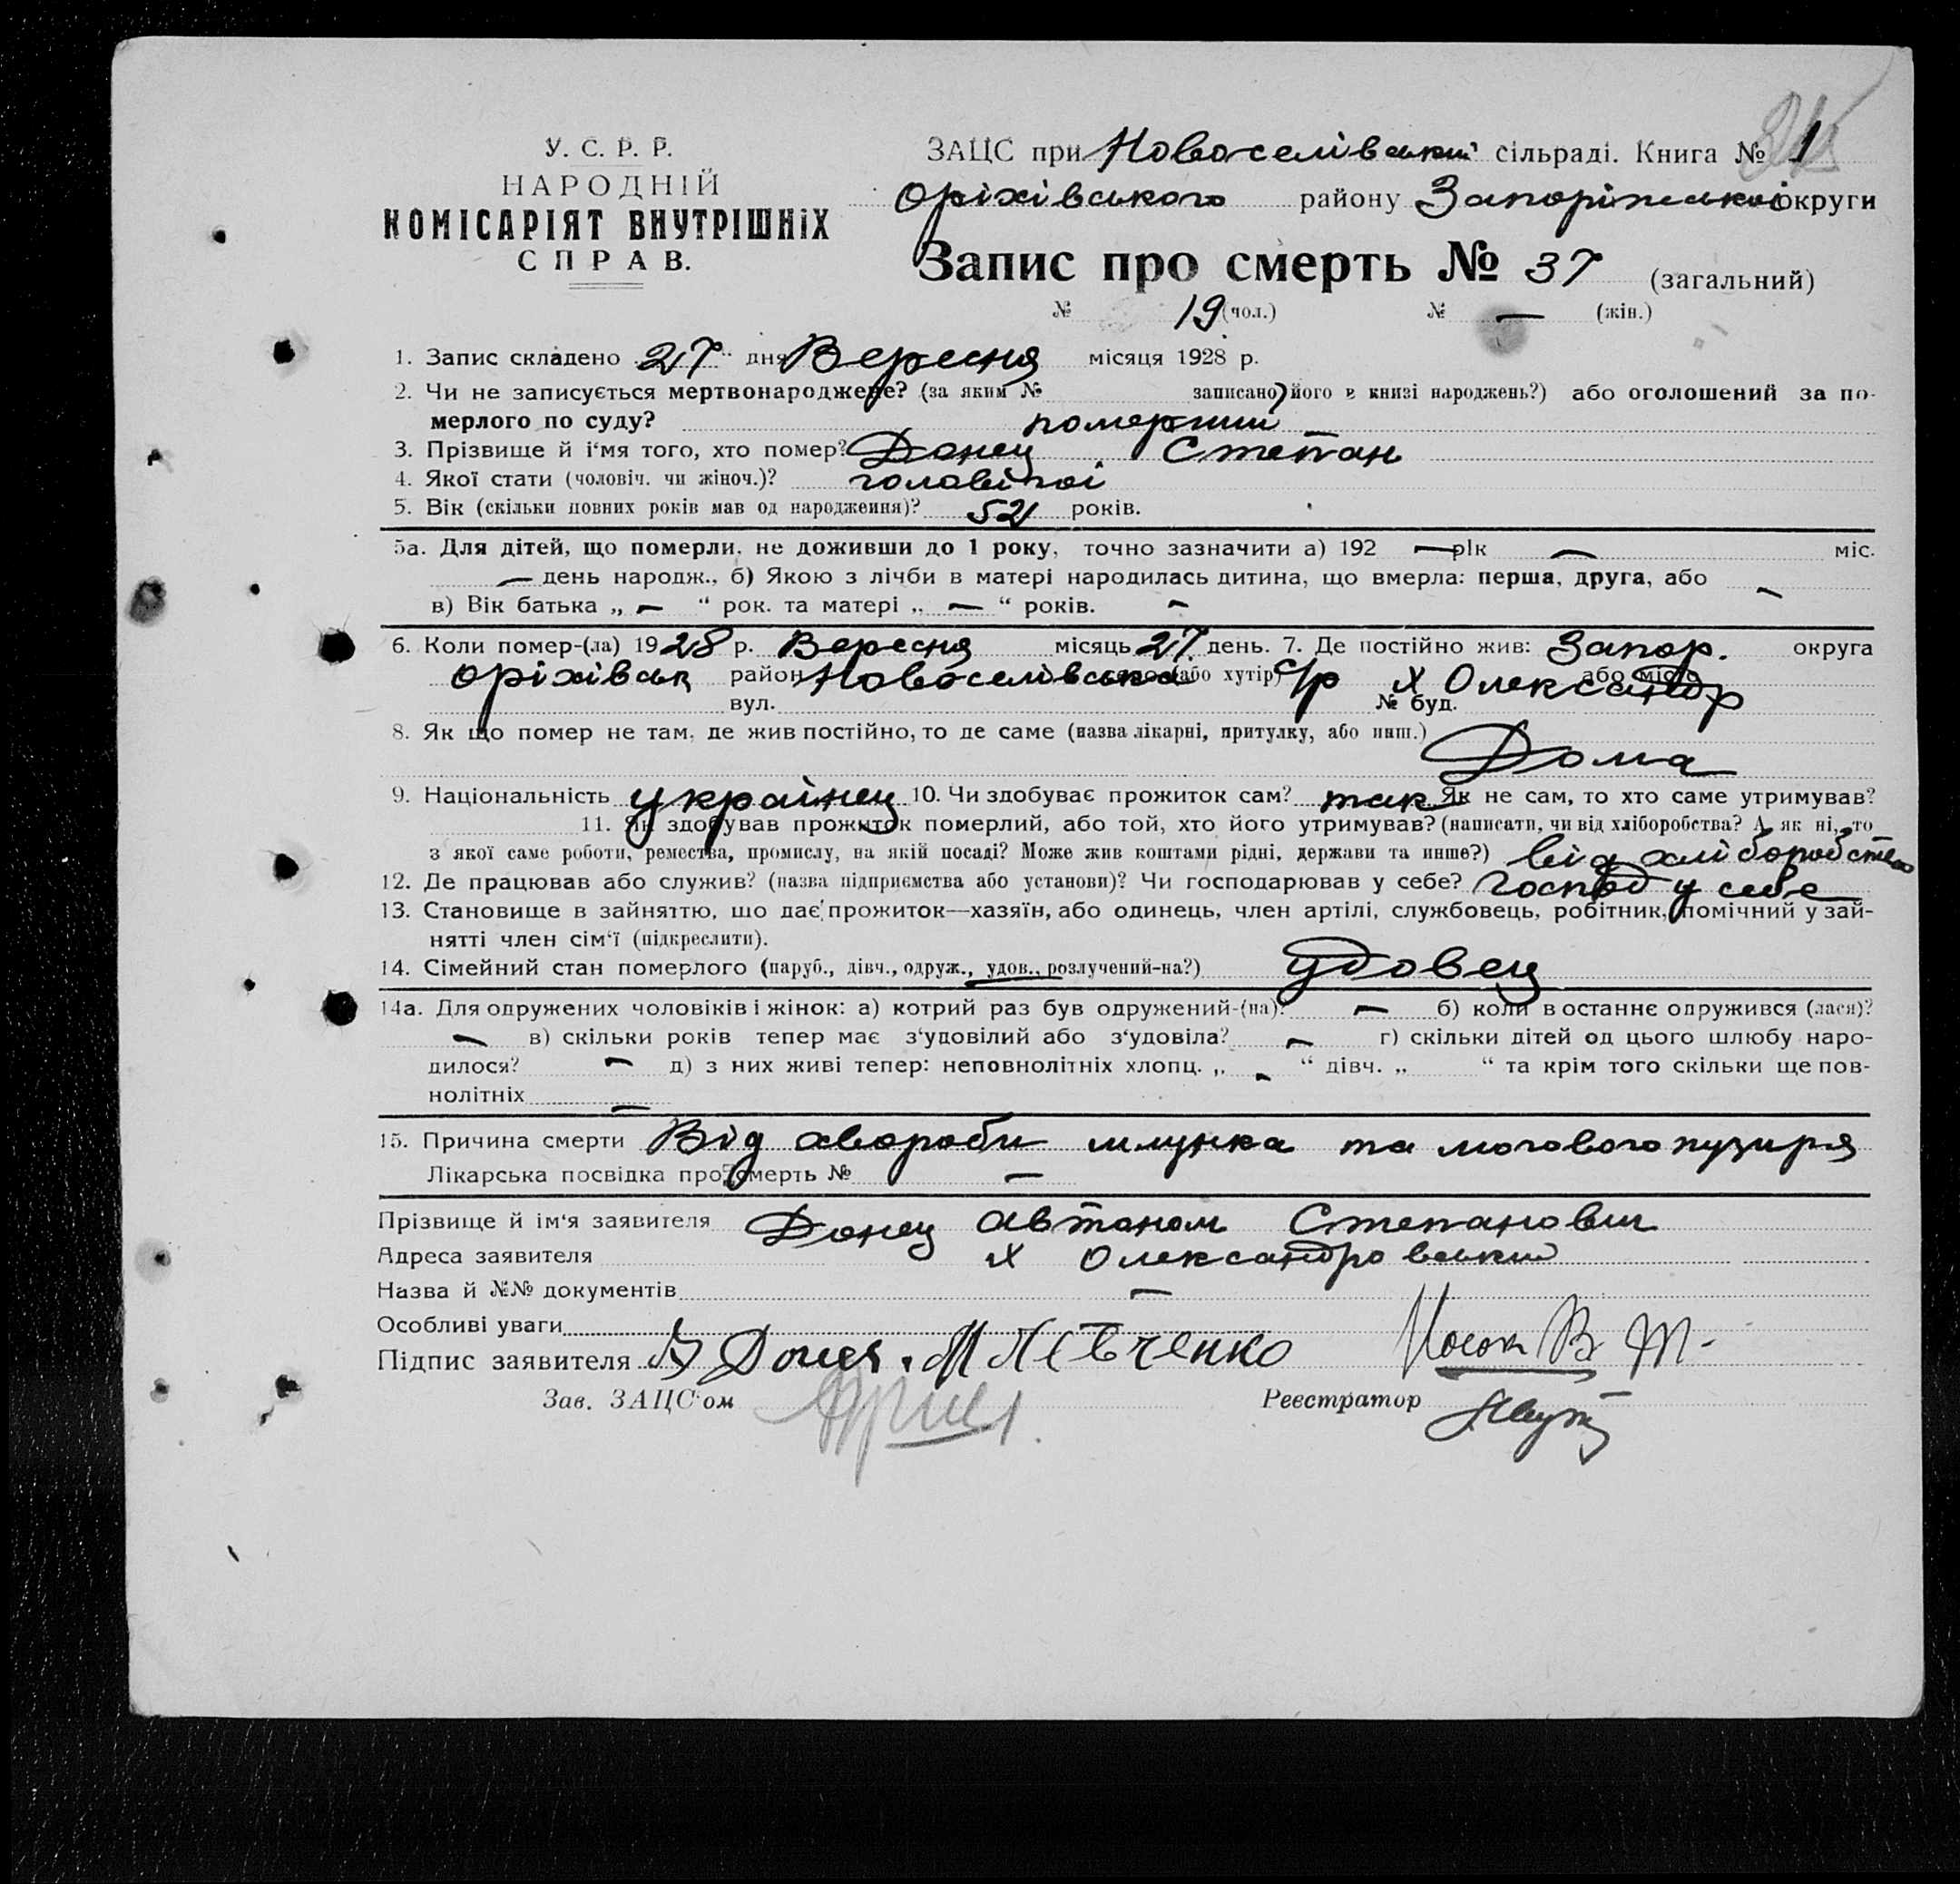 У. С. Р. Р.
НАРОДНІЙ
КОМІСАРІЯТ ВНУТРІШНІХ
СПРАВ.
ЗАЦС при Новоселівський сільраді. Книга № 1
Оріхівського району Запоріжської округи
Запис про смерть № 37 (загальний)
№ 19 (чол.) № — (жін.)
1. Запис складено 27 " дня Вересня місяця 1928 р.
2. Чи не записується мертвонароджене? (за яким № записано його в книзі народжень?) або оголошений за по-
мерлого по суду? померший
3. Прізвище й і'мя того, хто помер? Донец Степан
4. Якої стати (чоловіч. чи жіноч.)? чоловічої
5. Вік (скільки повних років мав од народження)? 52 років.
5а. Для дітей, що померли, не доживши до 1 року, точно зазначити а) 192 — рік — міс.
— день народж., б) Якою з лічби в матері народилась дитина, що вмерла: перша, друга, або —
в) Вік батька „ — “ рок. та матері „ — “ років. —
6. Коли помер-(ла) 1928 р. Вересня місяць 27 день. 7. Де постійно жив: Запор. округа
Оріхівськ район Новоселівська (або хутір) с/р х Олександр або місто
вул. № буд.
8. Як що помер не там, де жив постійно, то де саме (назва лікарні, притулку, або инш.)
Дома
9. Національність українец 10. Чи здобуває прожиток сам? так Як не сам, то хто саме утримував?
11. Як здобував прожиток померлий, або той, хто його утримував? (написати, чи від хліборобства? А як ні, то
з якої саме роботи, ремества, промислу, на якій посаді? Може жив коштами рідні, держави та инше?) від хліборобства
12. Де працював або служив? (назва підприємства або установи)? Чи господарював у себе? господ у себе
13. Становище в зайняттю, що дає прожиток—хазяїн, або одинець, член артілі, службовець, робітник, помічний у зай-
нятті член сім'ї (підкреслити).
14. Сімейний стан померлого (паруб., дівч., одруж., удов., розлучений-на?) удовец
14а. Для одружених чоловіків і жінок: а) котрий раз був одружений-(на)? — б) коли в останнє одружився (лася)?
— в) скільки років тепер має з'удовілий або з'удовіла? — г) скільки дітей од цього шлюбу наро-
дилося? — д) з них живі тепер: неповнолітніх хлопц. „ — “ дівч. „ “ та крім того скільки ще пов-
нолітніх —
15. Причина смерти Від хвороби шлунка та мочового пузиря
Лікарська посвідка про смерть № —
Прізвище й ім'я заявителя Донец Автоном Степанович
Адреса заявителя х Олександровський
Назва й №№ документів —
Особливі уваги
Підпис заявителя Донец. М Левченко Носок В М
Зав. ЗАЦС'ом
Реєстратор